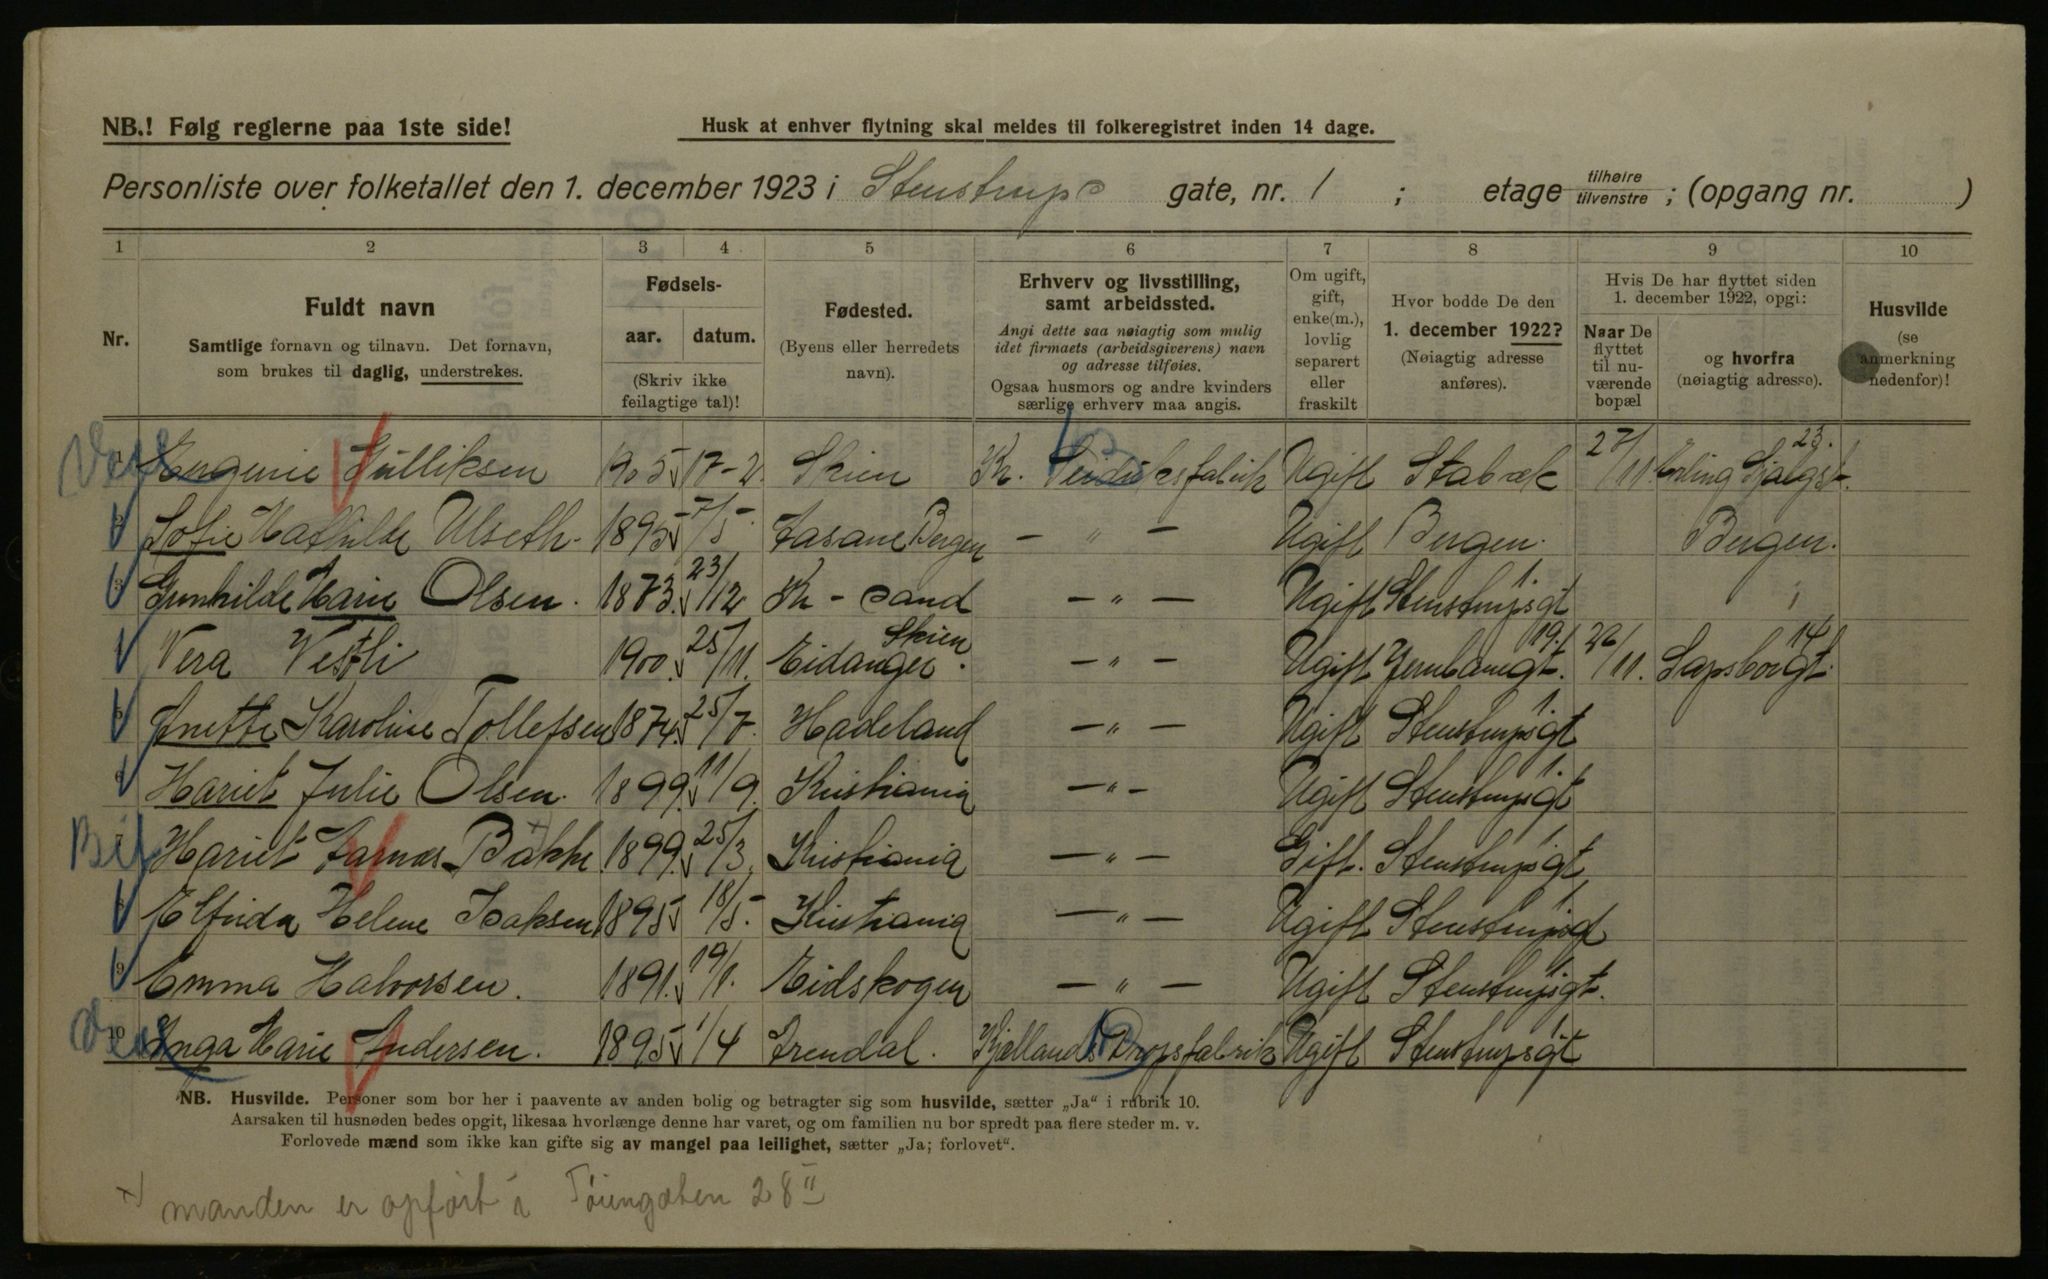 NB.! Følg reglerne paa 1ste side!
Husk at enhver flytning skal meldes til folkeregistret inden 14 dage.
Personliste over folketallet den 1. december 1923 i Stenstrups gate, nr. 1 ; etage tilhøire tilvenstre ; (opgang nr. )
1 2 3 4 5 6 7 8 9 10
Nr.
Fuldt navn
Samtlige fornavn og tilnavn. Det fornavn,
som brukes til daglig, understrekes.
Fødsels-
aar. datum.
(Skriv ikke
feilagtige tal)!
Fødested.
(Byens eller herredets
navn).
Erhverv og livsstilling,
samt arbeidssted.
Angi dette saa nøiagtig som mulig
idet firmaets (arbeidsgiverens) navn
og adresse tilføies.
Ogsaa husmors og andre kvinders
særlige erhverv maa angis.
Om ugift,
gift,
enke(m.),
lovlig
separert
eller
fraskilt
Hvor bodde De den
1. december 1922?
(Nøiagtig adresse
anføres).
Hvis De har flyttet siden
1. december 1922, opgi:
Naar De
flyttet
til nu-
værende
bopæl
og hvorfra
(nøiagtig adresse).
Husvilde
(se
anmerkning
nedenfor)!
Eugenie Gulliksen 1905 17-2. Skien Kr. Ugift Stabæk 27/11. Erling Skjalgst. 23.
2 Sofie Mathilde Ulseth. 1895 7/5. Aasane Bergen — " — Ugift Bergen. Bergen.
3 Gunhilde Marie Olsen. 1873. 23/12 Kr - sand — " — Ugift Stenstrupsgt 1
Vera Vestli 1900. 25/11. Eidanger Skien. — " — Ugift Jernbanegt. 19. 26/11. Sapsborgt. 14
5 Anette Karoline Tollefsen 1874. 25/7. Hadeland — " — Ugift Stenstrupsgt 1
Hariet Julie Olsen. 1899. 11/9. Kristiania — " — Ugift Stenstrupsgt 1
Hariet Bakke. 1899. 25/3. Kristiania — " — Gift. Stenstrupsgt 1
8 Elfrida Helene Isaksen 1895 18/5. Kristiania — " — Ugift Stenstrupsgt 1
9 Emma Halvorsen. 1891. 19/1. Eidskogen — " — Ugift Stenstrupsgt. 1
10 Inga Marie Andersen. 1895 1/4 Arendal. Kjællands Dropsfabrik Ugift Stenstrupsgt 1
NB. Husvilde. Personer som bor her i paavente av anden bolig og betragter sig som husvilde, sætter „Ja“ i rubrik 10.
Aarsaken til husnøden bedes opgit, likesaa hvorlænge denne har varet, og om familien nu bor spredt paa flere steder m. v.
Forlovede mænd som ikke kan gifte sig av mangel paa leilighet, sætter „Ja; forlovet“.
x) manden er opført i Tøiengaten 28 II